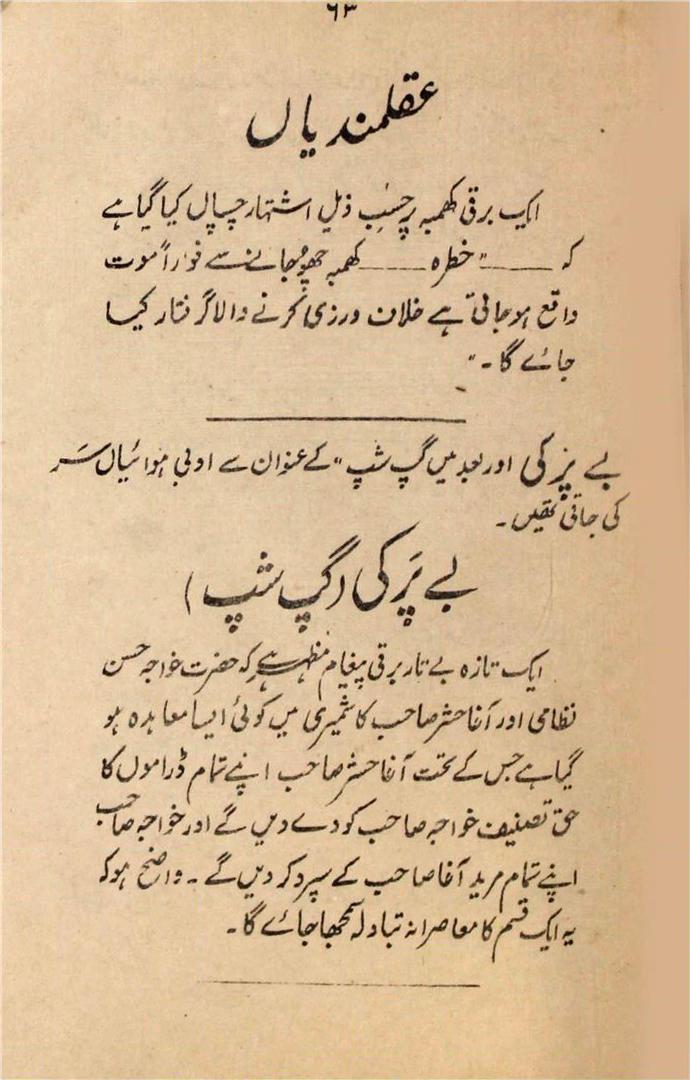 ۶۳
عقلمندیاں
ایک برقی کھمبہ پر حسبِ ذیل اشتہار چسپاں کیا گیا ہے
کہ ــــــ "خطرہ ــــــ کھمبہ چھو جانے سے فوراً موت
واقع ہو جاتی ہے خلاف ورزی کرنے والا گرفتار کیا
جائے گا۔"
بے پَر کی اور بعد میں گپ شپ" کے عنوان سے ادبی ہوائیاں سَر
کی جاتی تھیں۔
بے پَر کی (گپ شپ)
ایک تازہ بے تار برقی پیغام مظہر ہے کہ حضرت خواجہ حسن
نظامی اور آغا حشر صاحب کاشمیری میں کوئی ایسا معاہدہ ہو
گیا ہے جس کے تحت آغا حشر صاحب اپنے تمام ڈراموں کا
حق تصنیف خواجہ صاحب کو دے دیں گے اور خواجہ صاحب
اپنے تمام مرید آغا صاحب کے سپرد کر دیں گے۔ واضح ہو کہ
یہ ایک قسم کا معاصرانہ تبادلہ سمجھا جائے گا۔